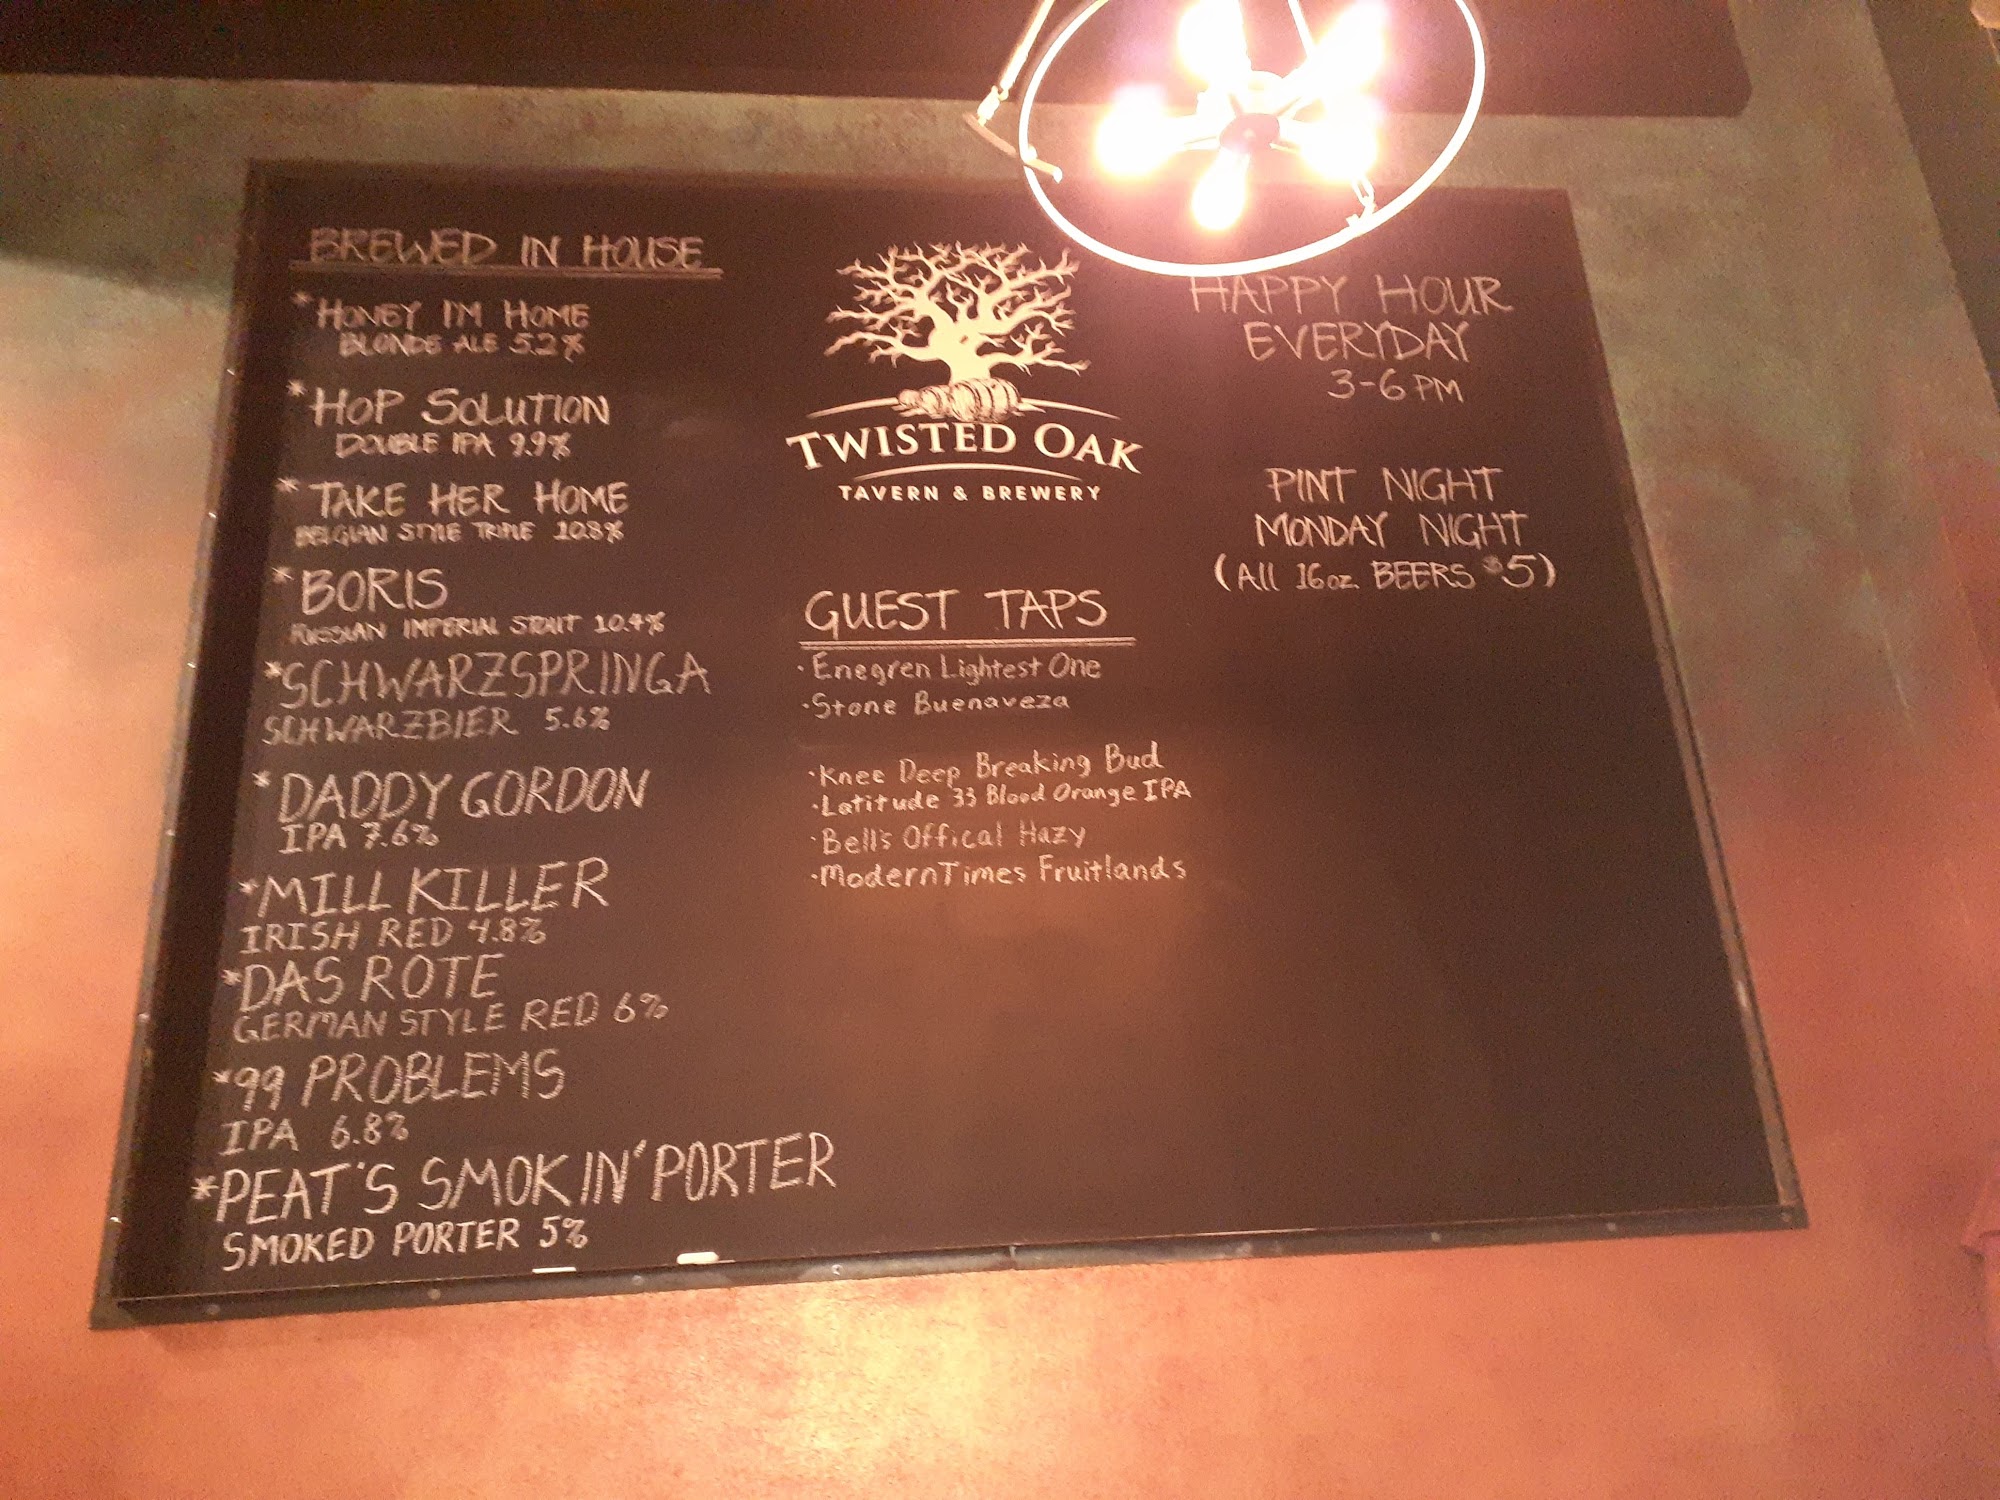 BREWED IN HOUSE
* HONEY I'M HOME
BLONDE ALE 5.2%
* HOP SOLUTION
DOUBLE IPA 9.9%
* TAKE HER HOME
BELGIAN STYLE TRIPLE 10.8%
* BORIS
RUSSIAN IMPERIAL STOUT 10.4%
* SCHWARZSPRINGA
SCHWARZBIER 5.6%
* DADDY GORDON
IPA 7.6%
* MILL KILLER
IRISH RED 4.8%
* DAS ROTE
GERMAN STYLE RED 6%
* 99 PROBLEMS
IPA 6.8%
* PEAT'S SMOKIN' PORTER
SMOKED PORTER 5%
TWISTED OAK
TAVERN & BREWERY
GUEST TAPS
· Enegren Lightest One
· Stone Buenaveza
· Knee Deep Breaking Bud
· Latitude 33 Blood Orange IPA
· Bell's Offical Hazy
· Modern Times Fruitlands
HAPPY HOUR
EVERYDAY
3-6 PM
PINT NIGHT
MONDAY NIGHT
(All 16oz. BEERS $5)